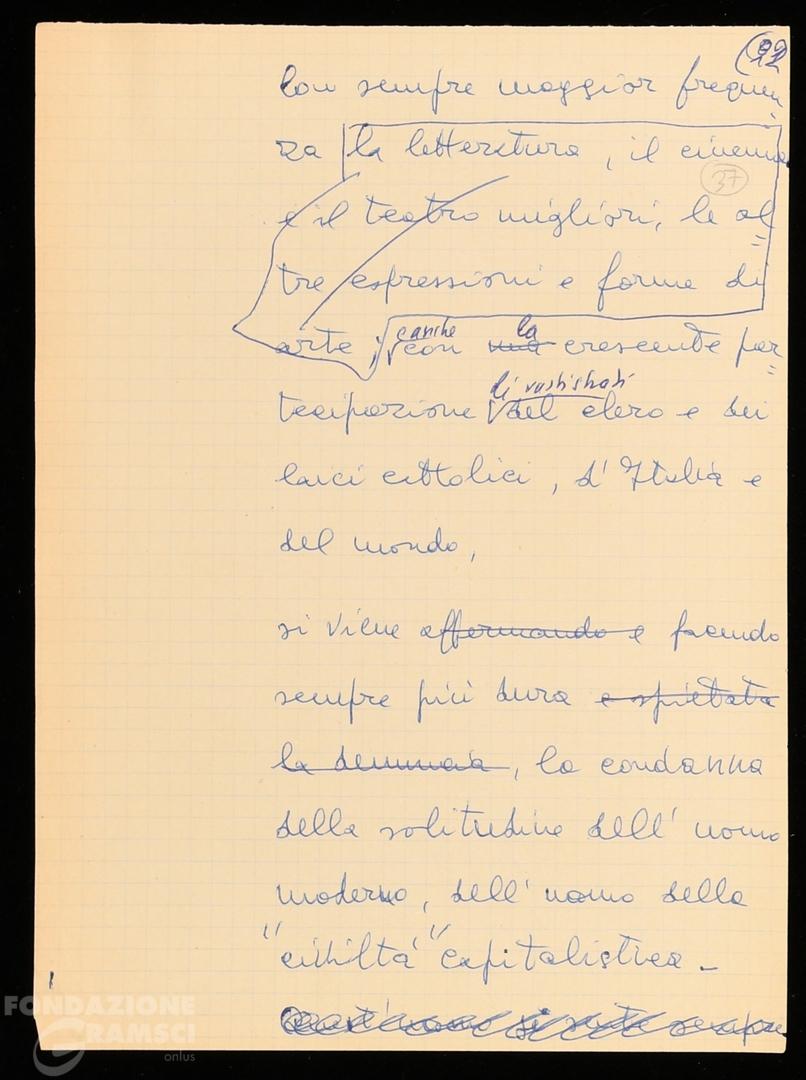 (92
con sempre maggior frequen
za la letteratura, il cinema
37
e il teatro migliori, le al
tre espressioni e forme di
arte, e anche con una la crescente par
tecipazione di vasti strati del clero e dei
laici cattolici, d'Italia e
del mondo,
si viene affermando e facendo
sempre più dura e spietata
la denuncia, la condanna
della solitudine dell'uomo
moderno, dell'uomo della
"civiltà" capitalistica.
si sente sempre
FONDAZIONE
GRAMSCI
onlus